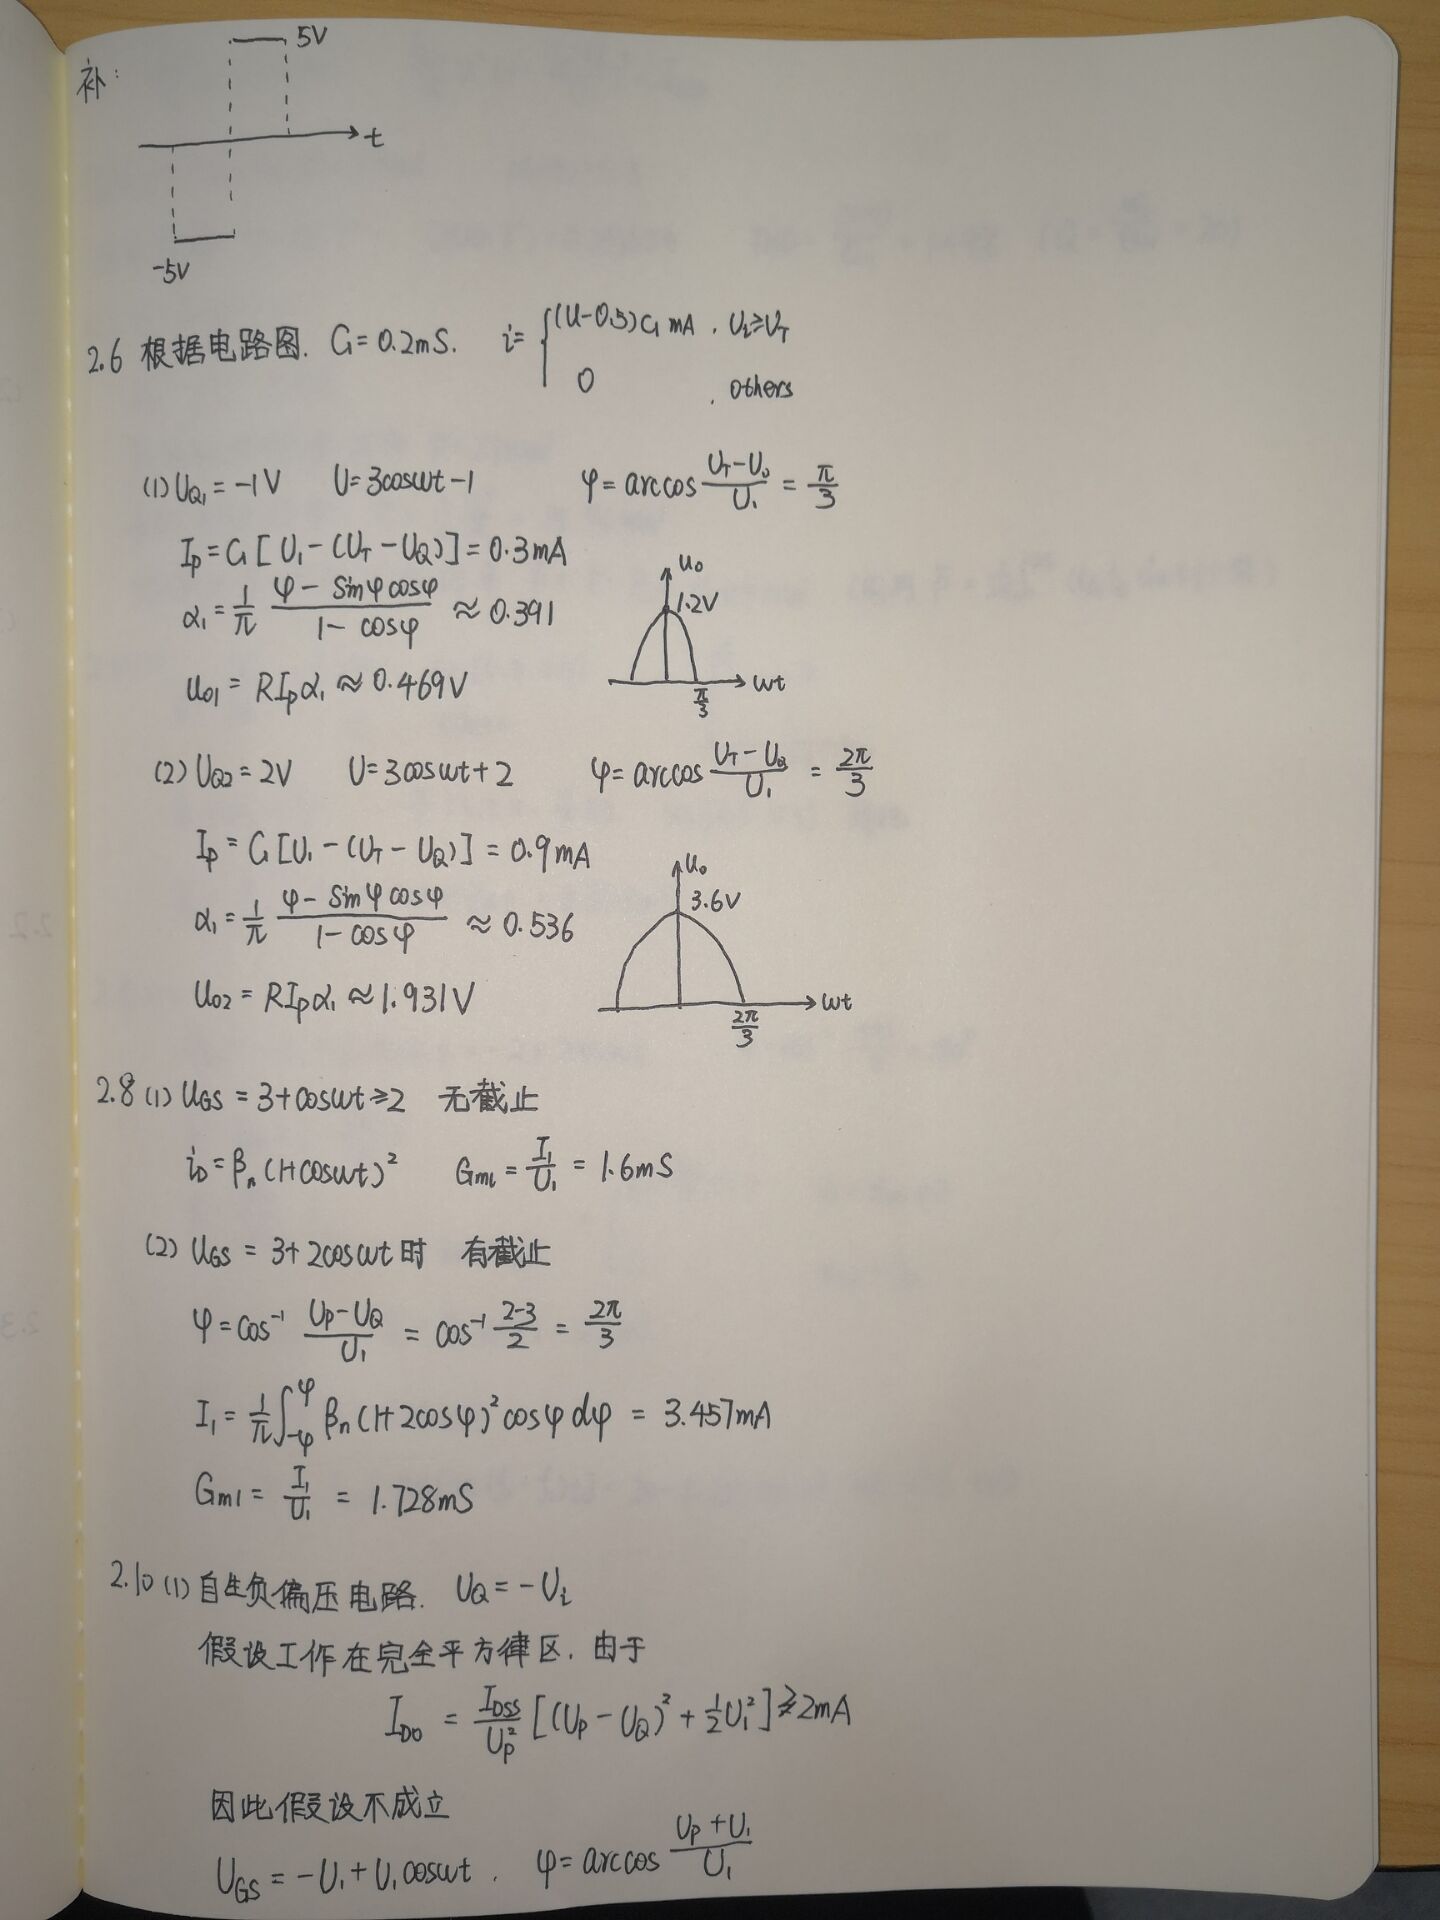 补:
5V
t
-5V
2.6 根据电路图. G=0.2mS. i={(U-0.5)G mA , Ui≥UT
0 , others
(1) UQ1=-1V U=3cosωt-1 φ=arccos (UT-U0)/U1 = π/3
Ip=G[U1-(UT-UQ)]=0.3mA
α1=1/π (φ-sinφcosφ)/(1-cosφ) ≈0.391
uo1=RIpα1≈0.469V
u0
1.2V
ωt
π/3
(2) UQ2=2V U=3cosωt+2 φ=arccos (UT-UQ)/U1 = 2π/3
Ip=G[U1-(UT-UQ)]=0.9mA
α1=1/π (φ-sinφcosφ)/(1-cosφ) ≈0.536
uo2=RIpα1≈1.931V
u0
3.6V
ωt
2π/3
2.8 (1) UGS=3+cosωt≥2 无截止
iD=βn(1+cosωt)² Gm1=I1/U1=1.6mS
(2) UGS=3+2cosωt时 有截止
φ=cos⁻¹ (UP-UQ)/U1 = cos⁻¹ (2-3)/2 = 2π/3
I1=1/π ∫-φ^φ βn(1+2cosφ)²cosφdφ = 3.457mA
Gm1=I1/U1=1.728mS
2.10 (1) 自生负偏压电路. UQ=-Ui
假设工作在完全平方律区. 由于
ID0 = IDSS/UP² [(UP-UQ)²+½U1²]≥2mA
因此假设不成立
UGS=-U1+U1cosωt . φ=arccos (UP+U1)/U1